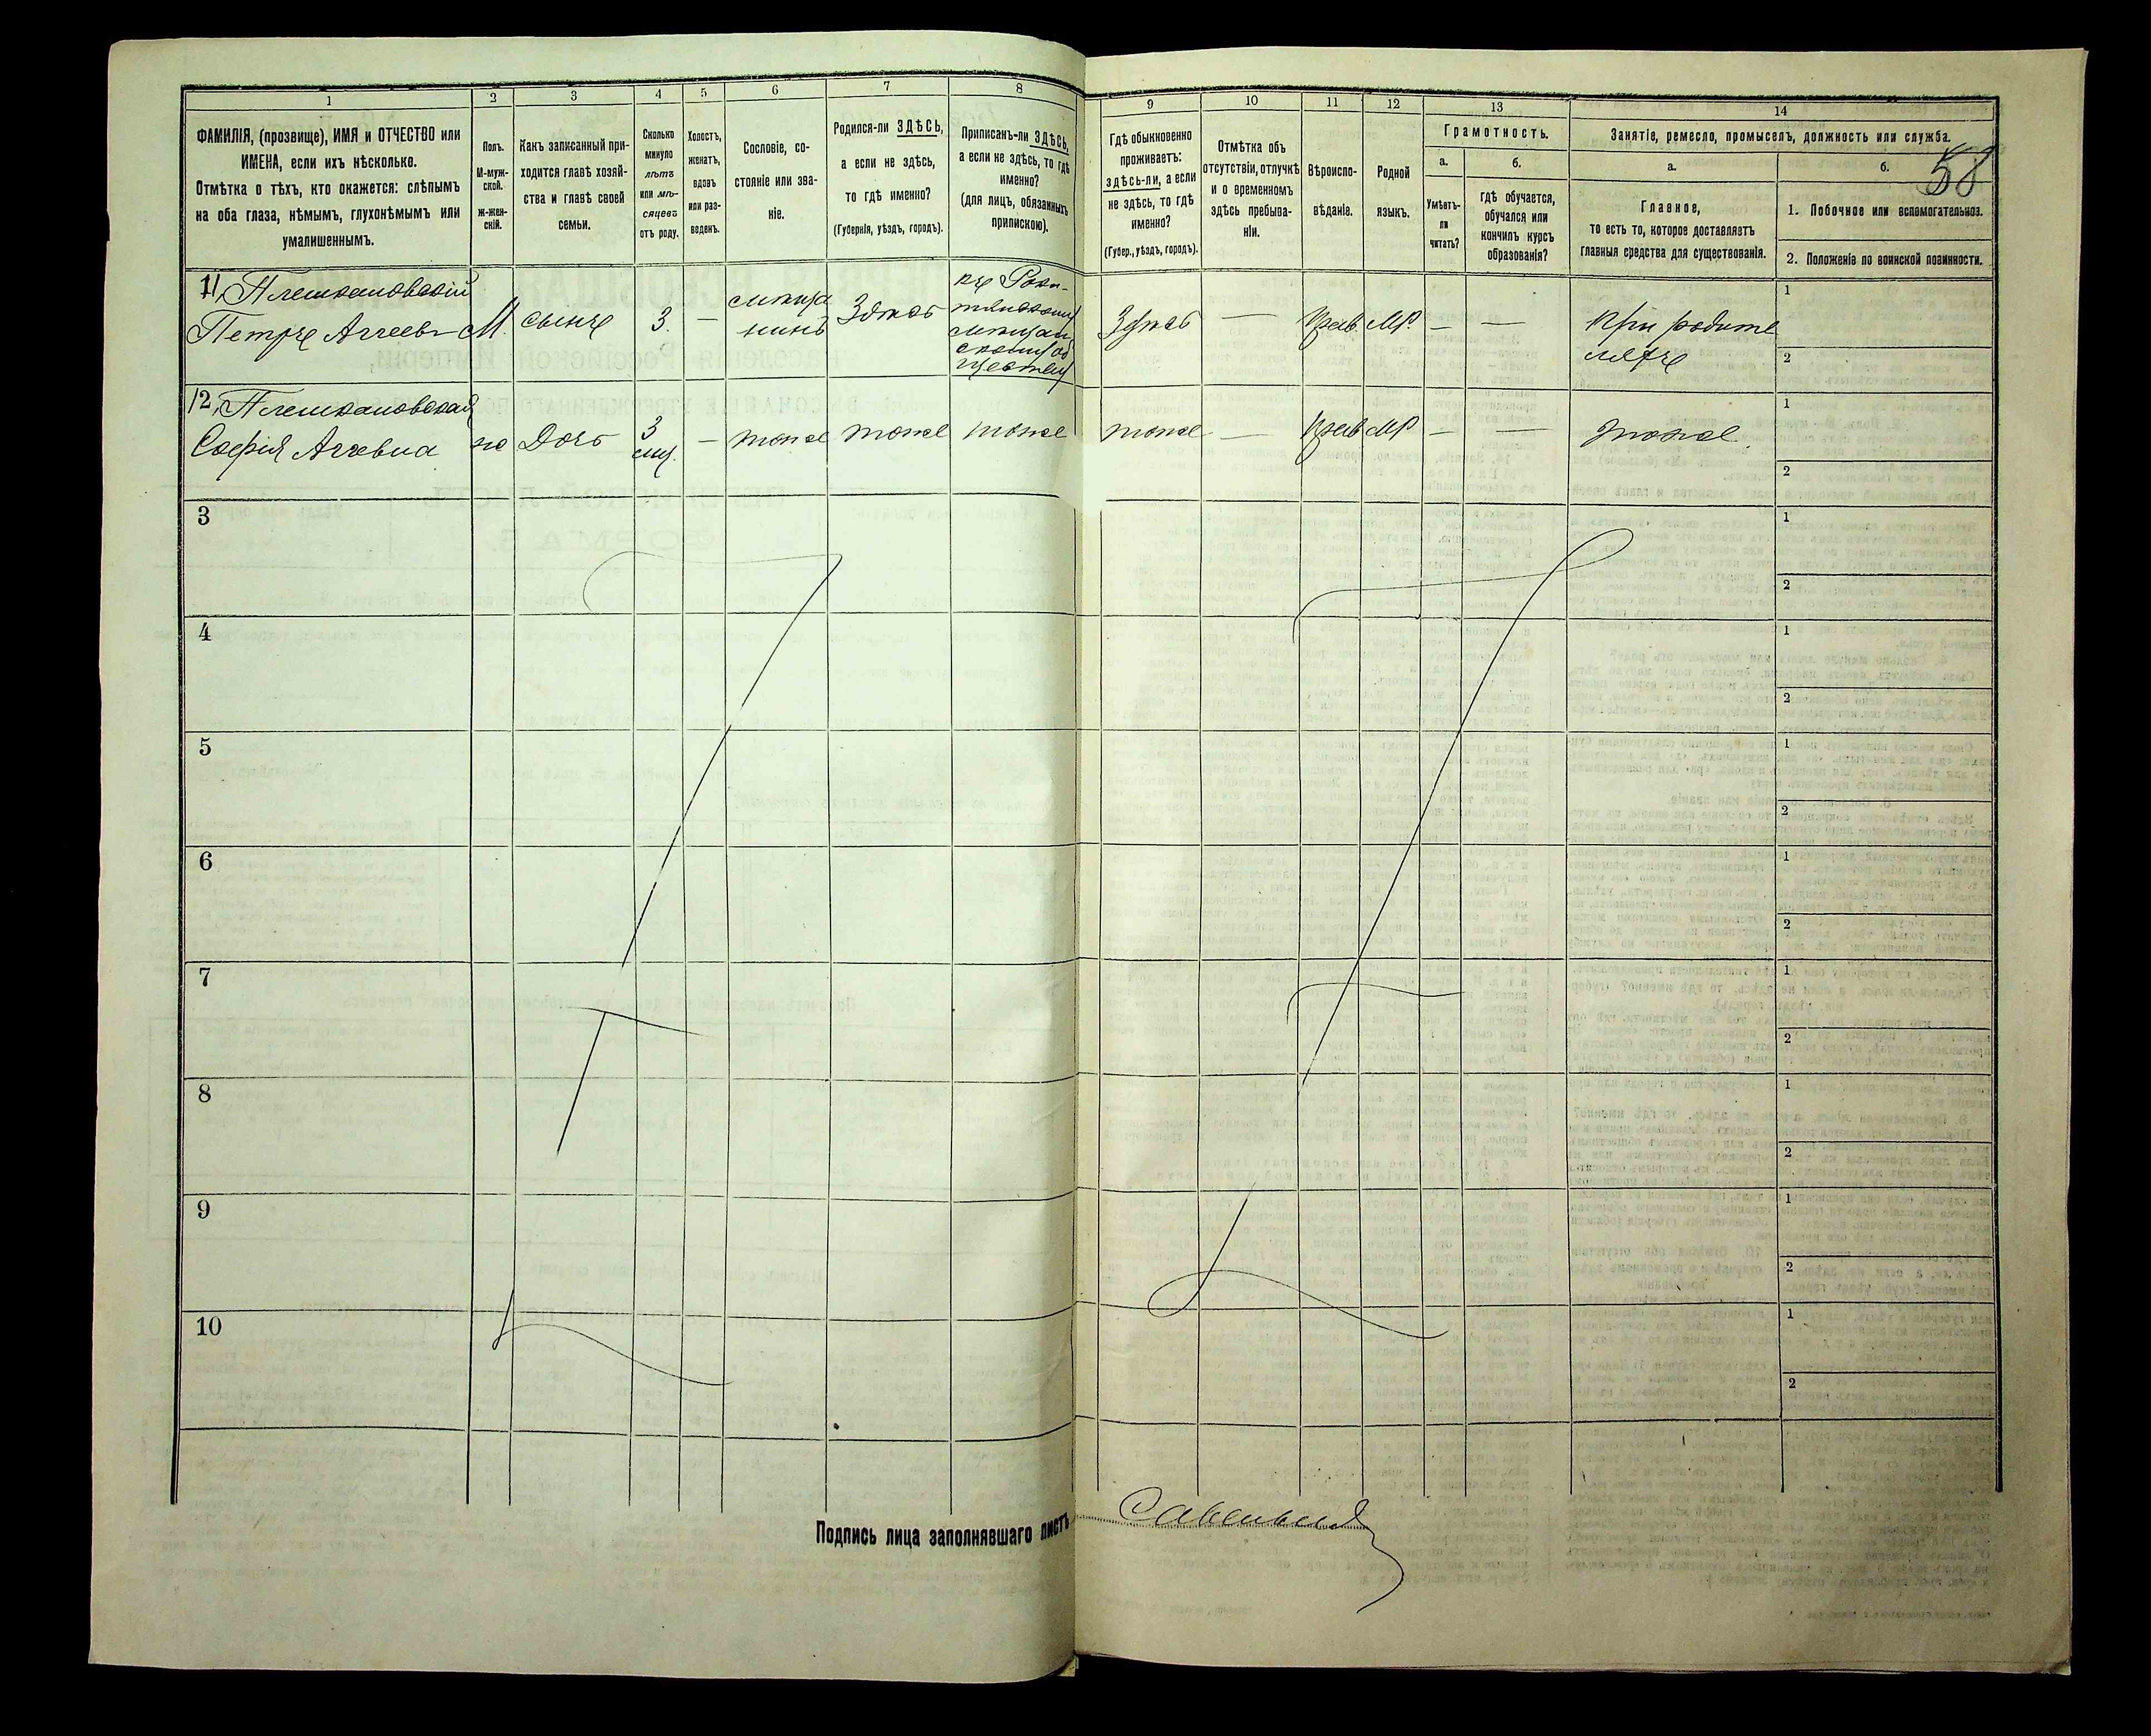 58
1
2
3
4
5
6
7
8
9
10
11
12
13
14
ФАМИЛІЯ, (прозвище), ИМЯ и ОТЧЕСТВО или
ИМЕНА, если ихъ нѣсколько.
Отмѣтка о тѣхъ, кто окажется: слѣпымъ
на оба глаза, нѣмымъ, глухонѣмымъ или
умалишеннымъ.
Полъ.
М-муж-
ской.
Ж-жен-
скій.
Какъ записанный при-
ходится главѣ хозяй-
ства и главѣ своей
семьи.
Сколько
минуло
лѣтъ
или мѣ-
сяцевъ
отъ роду.
Холостъ,
женатъ,
вдовъ
или раз-
веденъ.
Сословіе, со-
стояніе или зва-
ніе.
Родился-ли ЗДѢСЬ,
а если не здѣсь,
то гдѣ именно?
(Губернія, уѣздъ, городъ).
Приписанъ-ли ЗДѢСЬ,
а если не здѣсь, то гдѣ
именно?
(для лицъ, обязанныхъ
припискою).
Гдѣ обыкновенно
проживаетъ:
здѣсь-ли, а если
не здѣсь, то гдѣ
именно?
(Губер., уѣздъ, городъ).
Отмѣтка объ
отсутствіи, отлучкѣ
и о временномъ
здѣсь пребыва-
ніи.
Вѣроиспо-
вѣданіе.
Родной
языкъ.
Грамотность.
а.
б.
Умѣетъ-
ли
читать?
гдѣ обучается,
обучался или
кончилъ курсъ
образованія?
Занятіе, ремесло, промыселъ, должность или служба.
а.
б.
Главное,
то есть то, которое доставляетъ
главныя средства для существованія.
1. Побочное или вспомогательное.
2. Положеніе по воинской повинности.
11, Плешкановскій
Петръ Аггеевъ
М.
сынъ
3.
—
мѣща
нинъ
Здѣсь
къ Раки-
тянскому
мѣщан
скому об
ществу
Здѣсь
—
Прав.
МР.
—
—
При родите
ляхъ
1
2
12, Плешкановская
Софія Аггевна
ж
Дочь
3
мц.
—
тоже
тоже
тоже
тоже
—
Прав
МР
—
—
тоже
1
2
3
1
2
4
1
2
5
1
2
6
1
2
7
1
2
8
1
2
9
1
2
10
1
2
Подпись лица заполнявшаго листъ